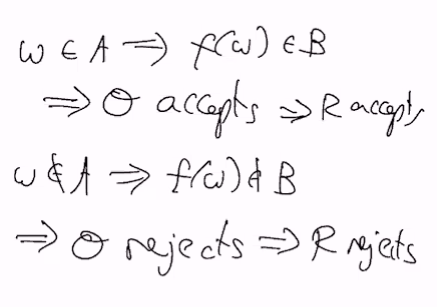 w ∈ A ⇒ f(w) ∈ B
⇒ O accepts ⇒ R accepts
w ∉ A ⇒ f(w) ∉ B
⇒ O rejects ⇒ R rejects